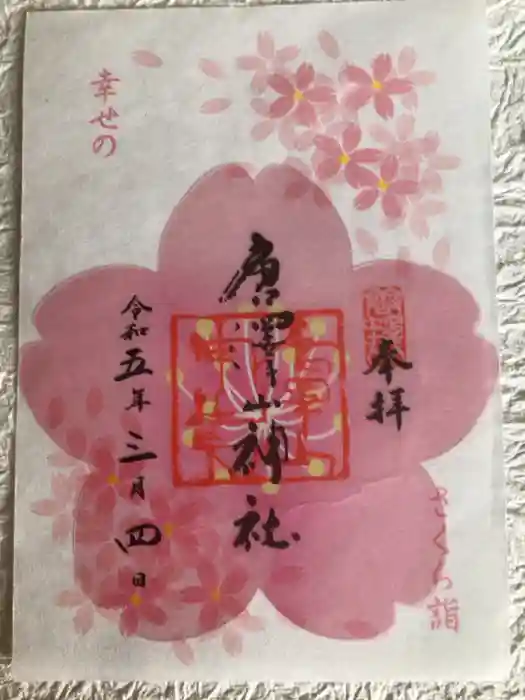 幸せの
奉拝
唐澤山神社
令和五年三月四日
さくら詣